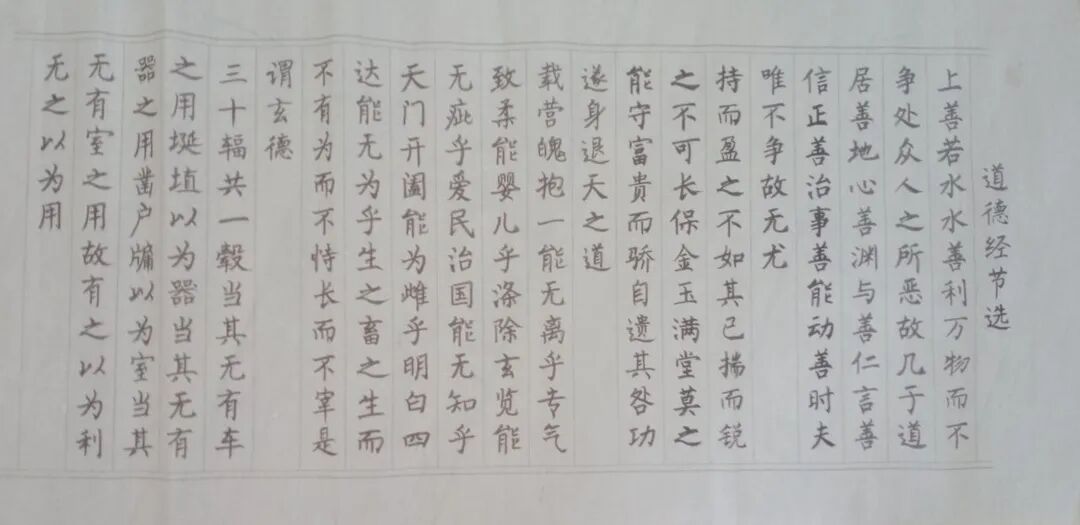 道德经节选
上善若水水善利万物而不
争处众人之所恶故几于道
居善地心善渊与善仁言善
信正善治事善能动善时夫
唯不争故无尤
持而盈之不如其已揣而锐
之不可长保金玉满堂莫之
能守富贵而骄自遗其咎功
遂身退天之道
载营魄抱一能无离乎专气
致柔能婴儿乎涤除玄览能
无疵乎爱民治国能无知乎
天门开阖能为雌乎明白四
达能无为乎生之畜之生而
不有为而不恃长而不宰是
谓玄德
三十辐共一毂当其无有车
之用埏埴以为器当其无有
器之用凿户牖以为室当其
无有室之用故有之以为利
无之以为用